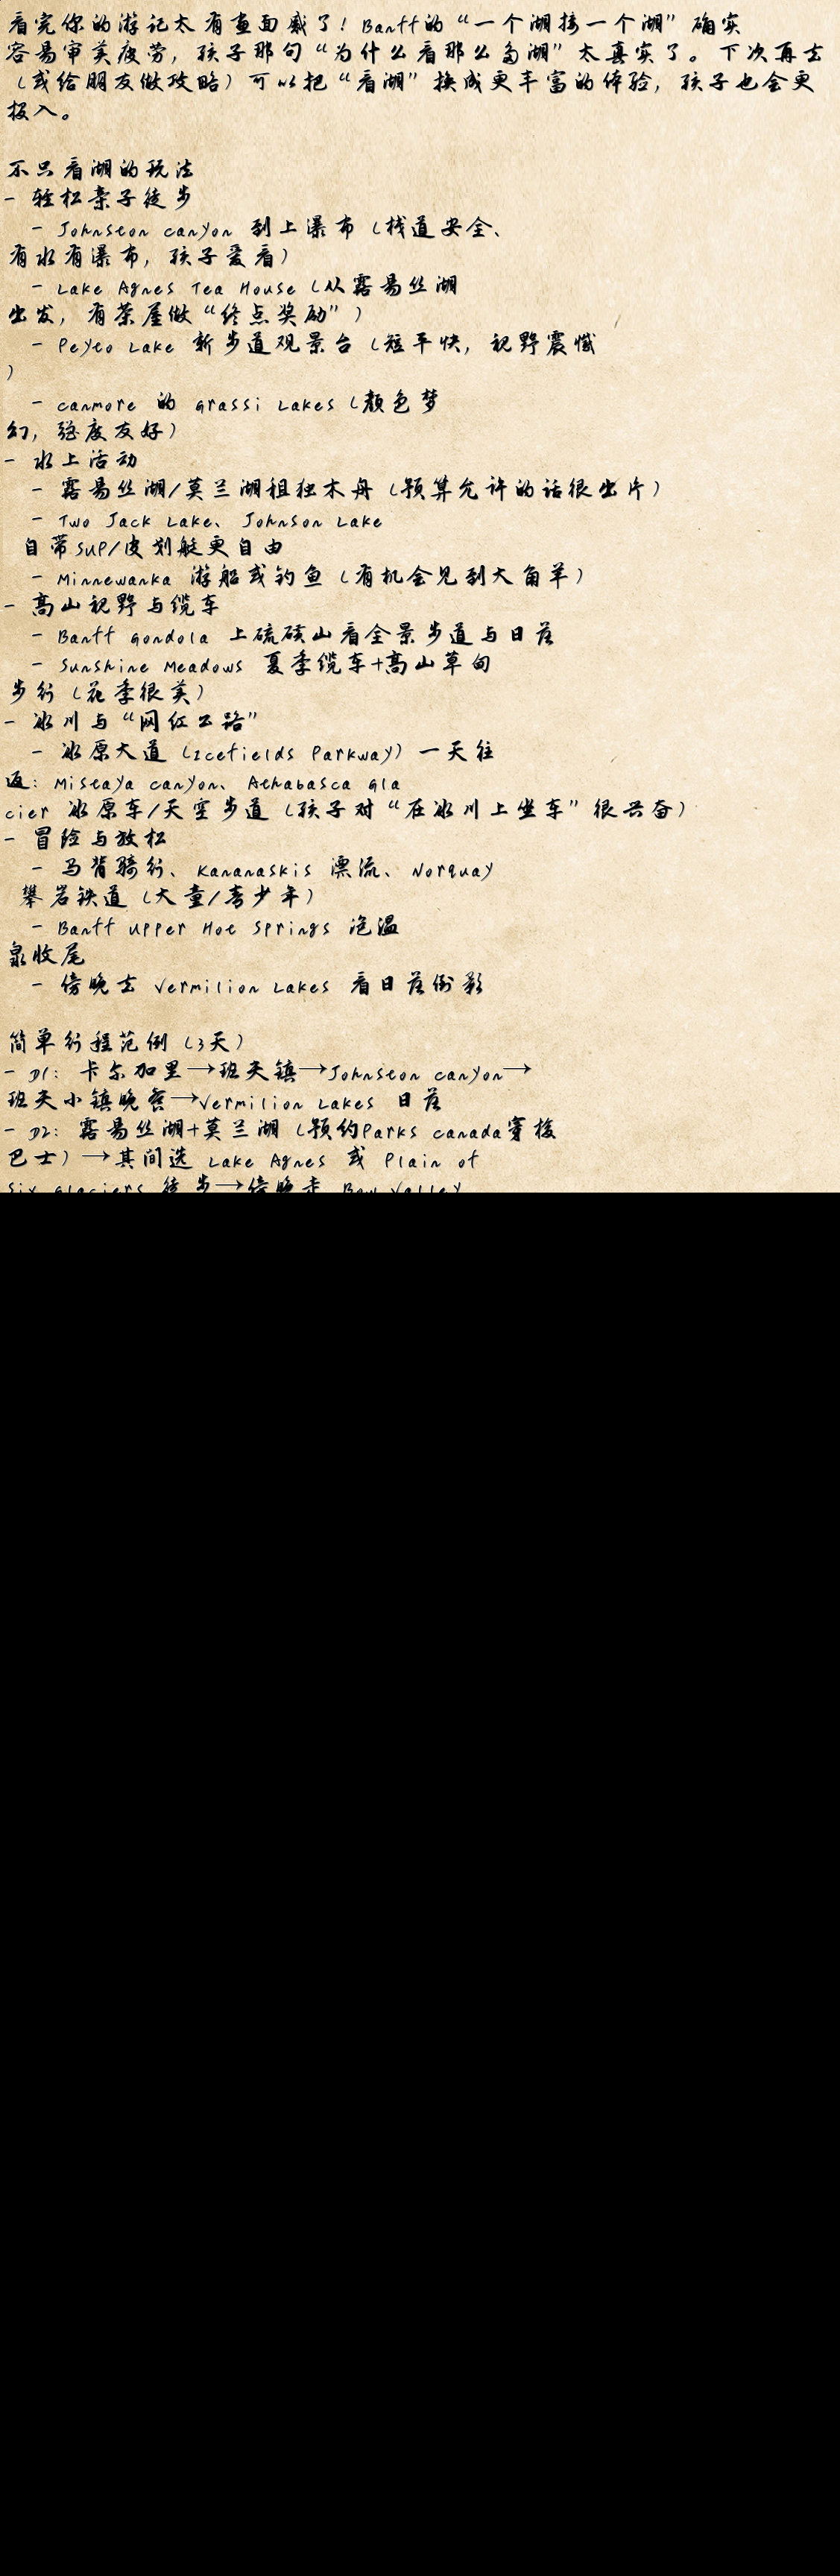 看完你的游记太有画面感了！Banff的“一个湖接一个湖”确实
容易审美疲劳，孩子那句“为什么看那么多湖”太真实了。下次再去
（或给朋友做攻略）可以把“看湖”换成更丰富的体验，孩子也会更
投入。
不只看湖的玩法
- 轻松亲子徒步
- Johnston Canyon 到上瀑布（栈道安全、
有水有瀑布，孩子爱看）
- Lake Agnes Tea House（从露易丝湖
出发，有茶屋做“终点奖励”）
- Peyto Lake 新步道观景台（短平快，视野震撼
）
- Canmore 的 Grassi Lakes（颜色梦
幻，强度友好）
- 水上活动
- 露易丝湖/莫兰湖租独木舟（预算允许的话很出片）
- Two Jack Lake、Johnson Lake
自带SUP/皮划艇更自由
- Minnewanka 游船或钓鱼（有机会见到大角羊）
- 高山视野与缆车
- Banff Gondola 上硫磺山看全景步道与日落
- Sunshine Meadows 夏季缆车+高山草甸
步行（花季很美）
- 冰川与“网红公路”
- 冰原大道（Icefields Parkway）一天往
返：Mistaya Canyon、Athabasca Gla
cier 冰原车/天空步道（孩子对“在冰川上坐车”很兴奋）
- 冒险与放松
- 马背骑行、Kananaskis 漂流、Norquay
攀岩铁道（大童/青少年）
- Banff Upper Hot Springs 泡温
泉收尾
- 傍晚去 Vermilion Lakes 看日落倒影
简单行程范例（3天）
- D1：卡尔加里→班夫镇→Johnston Canyon→
班夫小镇晚餐→Vermilion Lakes 日落
- D2：露易丝湖+莫兰湖（预约Parks Canada穿梭
巴士）→其间选 Lake Agnes 或 Plain of
Six Glaciers 徒步→傍晚走 Bow Valley